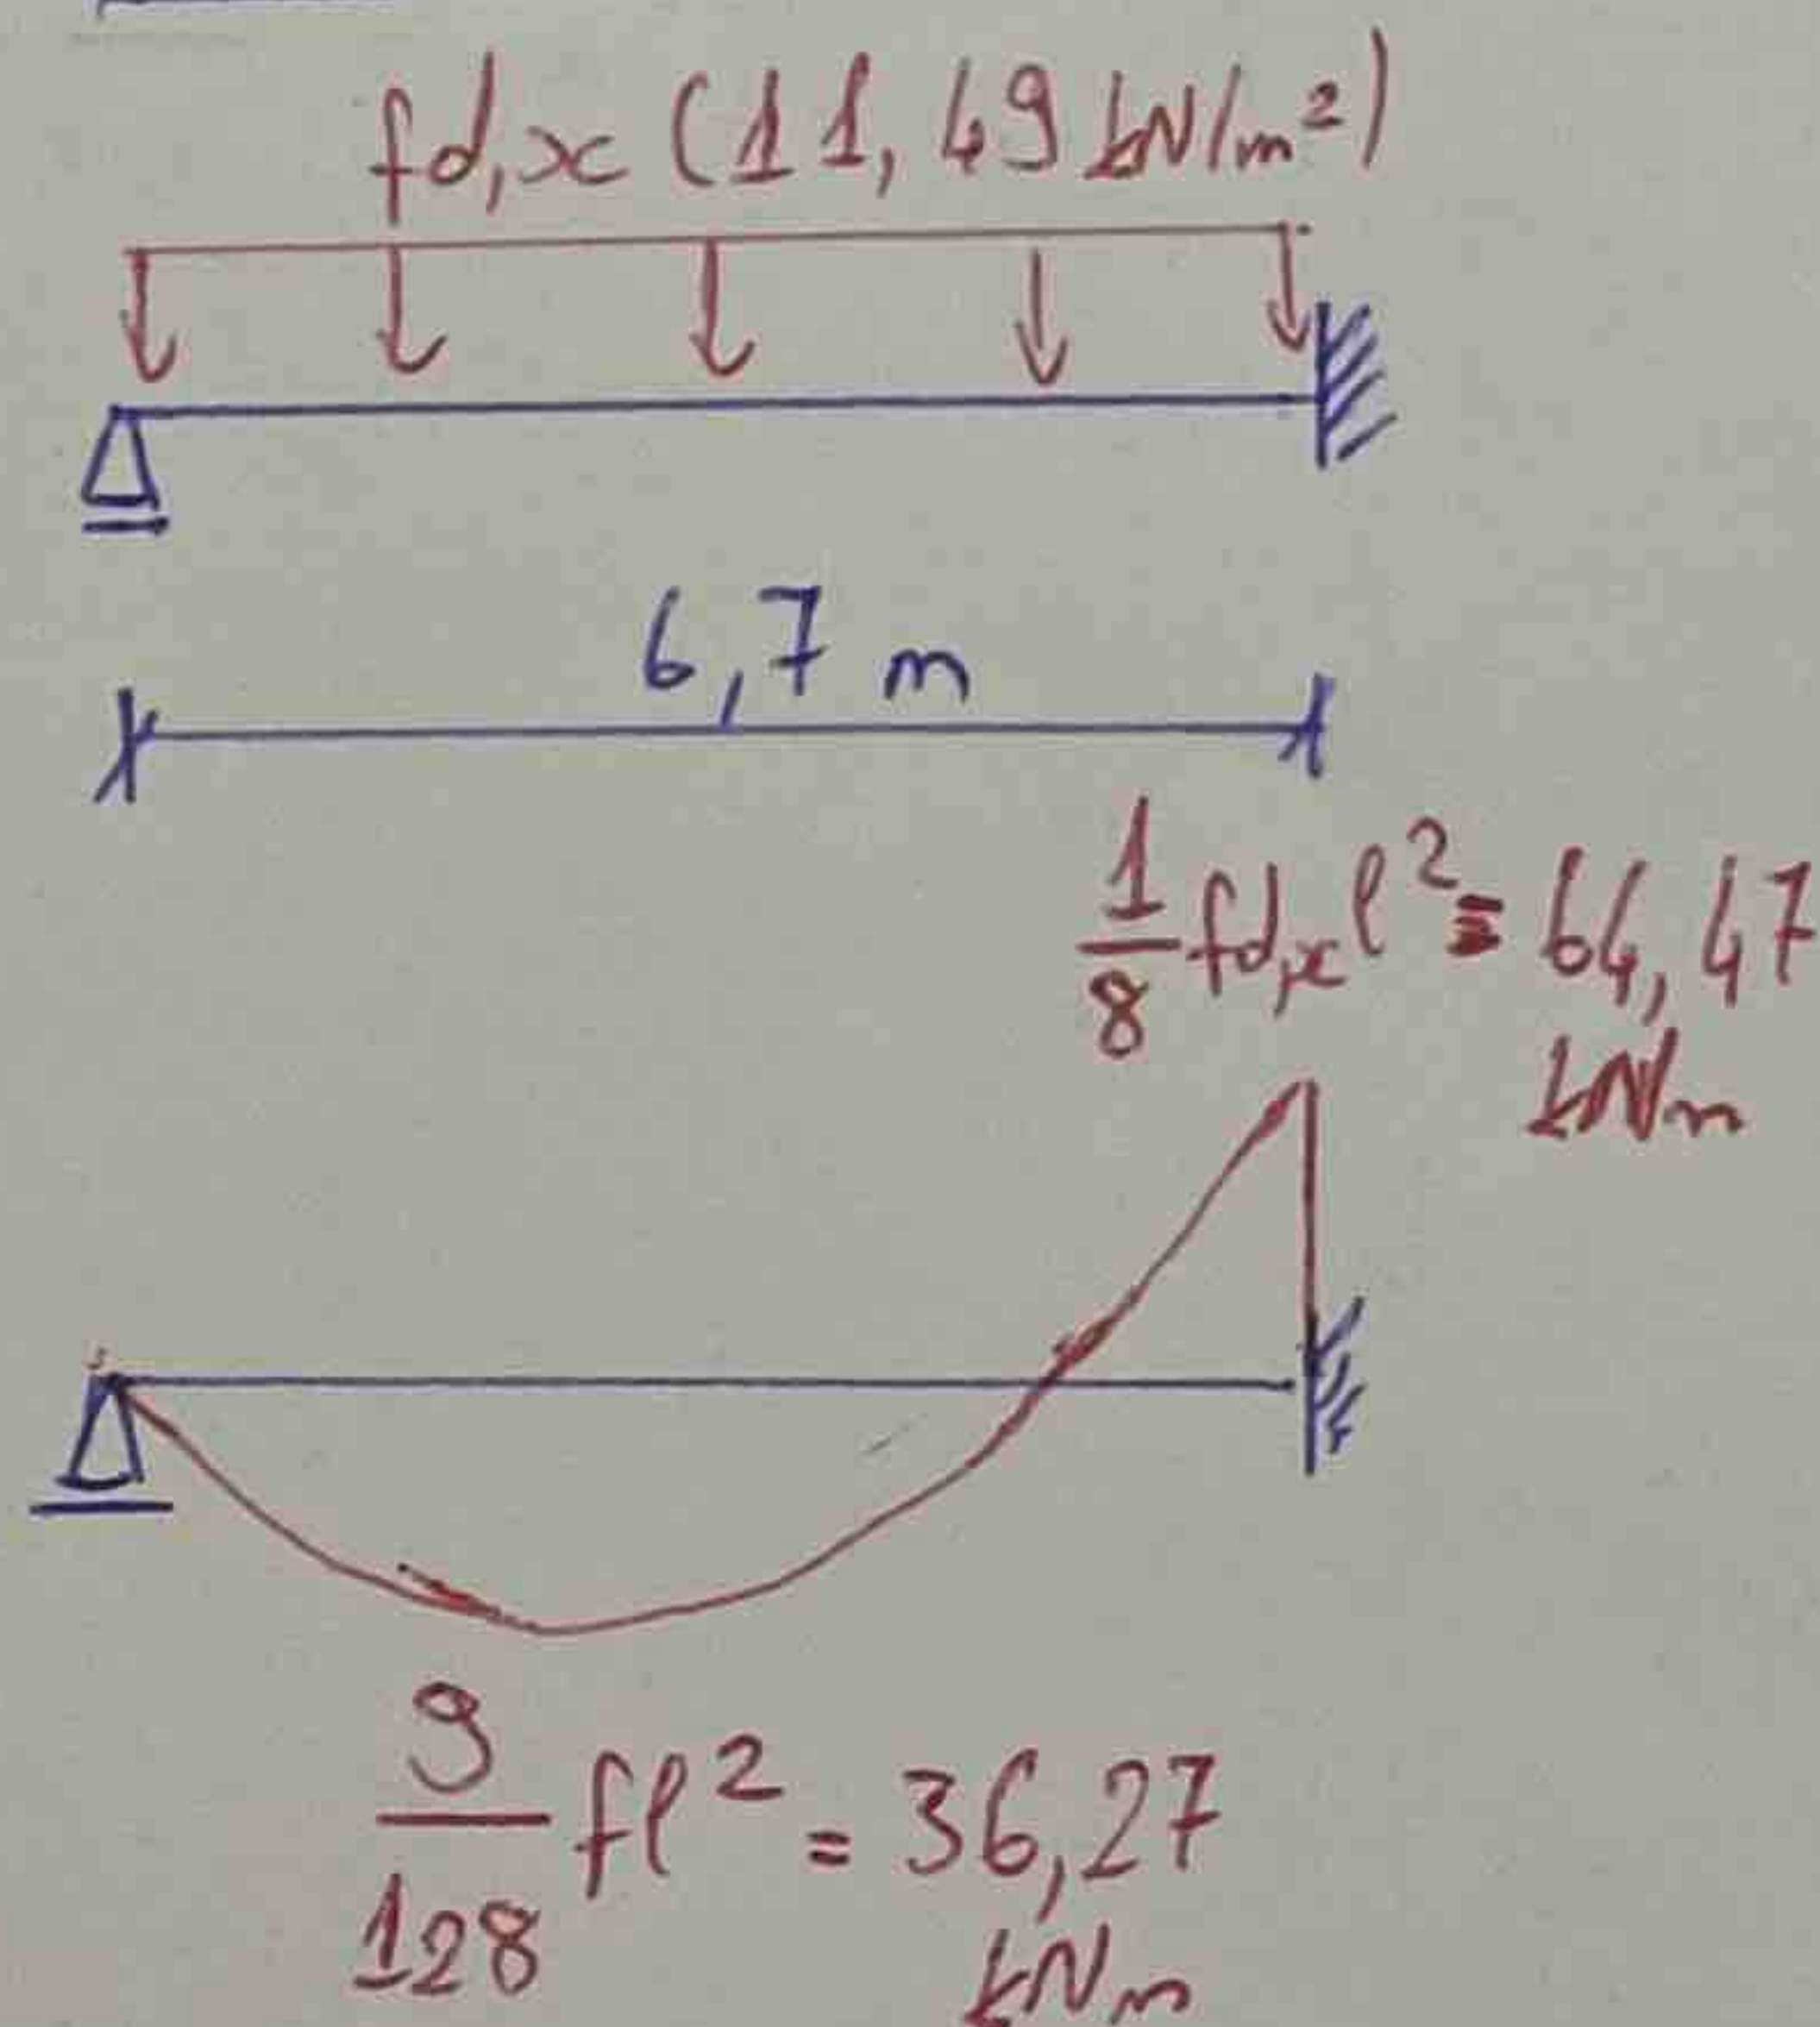 fd,x (11,49 kN/m²)
6,7 m
1/8 fd,x l² = 64,47
kNm
9/128 fl² = 36,27
kNm